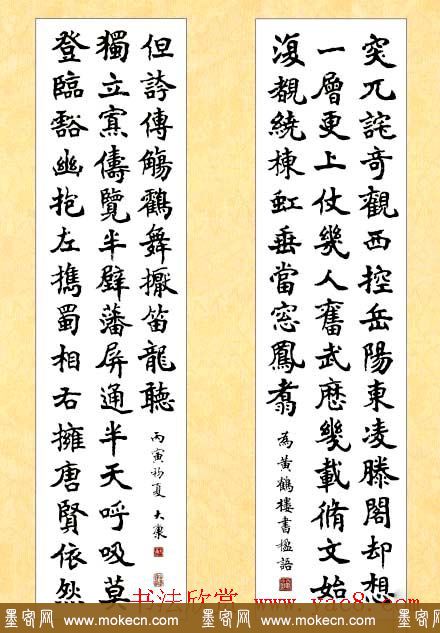 突兀詫奇觀西控岳陽東凌滕閣却想
一層更上仗幾人奮武歷幾載脩文始
復覩繞棟虹垂當窓鳳翥
為黃鶴樓書楹語
登臨豁幽抱左攜蜀相右擁唐賢依然
獨立寡儔覽半壁藩屏通半天呼吸莫
但誇傳觴鸛舞擫笛龍聽
丙寅初夏 大康
书法欣赏 www.yac8.com
墨客网 www.mokecn.com 墨客网 www.mokecn.com